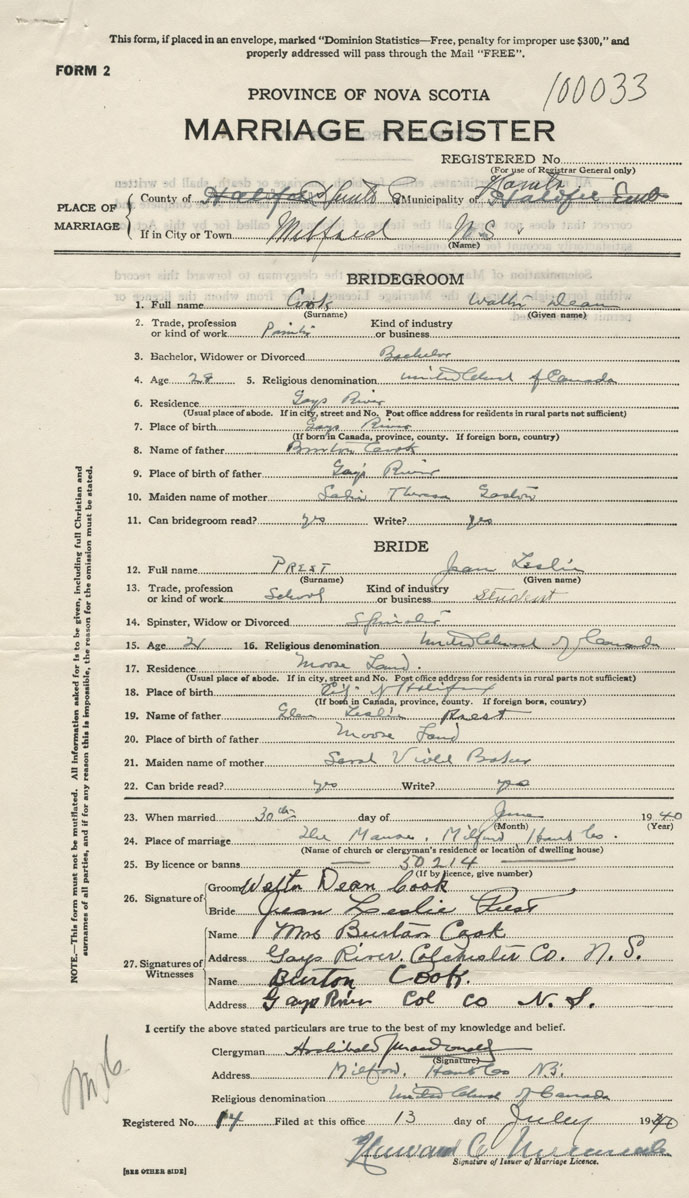 This form, if placed in an envelope, marked "Dominion Statistics—Free, penalty for improper use $300," and
properly addressed will pass through the Mail "FREE".
FORM 2
100033
PROVINCE OF NOVA SCOTIA
MARRIAGE REGISTER
REGISTERED No.
(For use of Registrar General only)
PLACE OF MARRIAGE
County of Halifax Hants Municipality of Hants Halifax East
If in City or Town Milford N.S
(Name)
BRIDEGROOM
1. Full name Cook Walter Dean
(Surname) (Given name)
2. Trade, profession or kind of work Kind of industry or business
3. Bachelor, Widower or Divorced Bachelor
4. Age 28 5. Religious denomination United Church of Canada
6. Residence Gays River
(Usual place of abode. If in city, street and No. Post office address for residents in rural parts not sufficient)
7. Place of birth Gays River
(If born in Canada, province, county. If foreign born, country)
8. Name of father Burton Cook
9. Place of birth of father Gays River
10. Maiden name of mother Theresa
11. Can bridegroom read? yes Write? yes
BRIDE
12. Full name PREST Jean Leslie
(Surname) (Given name)
13. Trade, profession or kind of work School Kind of industry or business Student
14. Spinster, Widow or Divorced Spinster
15. Age 21 16. Religious denomination United Church of Canada
17. Residence Moose Land.
(Usual place of abode. If in city, street and No. Post office address for residents in rural parts not sufficient)
18. Place of birth Halifax
(If born in Canada, province, county. If foreign born, country)
19. Name of father Glen Leslie Prest
20. Place of birth of father Moose Land
21. Maiden name of mother Sarah Violet Baker
22. Can bride read? yes Write? yes
23. When married 30th day of June 1940
(Month) (Year)
24. Place of marriage The Manse, Milford Hants Co.
(Name of church or clergyman's residence or location of dwelling house)
25. By licence or banns 50214
(If by licence, give number)
26. Signature of
Groom Walter Dean Cook
Bride Jean Leslie Prest
27. Signatures of Witnesses
Name Mrs Burton Cook
Address Gays River. Colchester Co. N. S.
Name Burton Cook.
Address Gays River Col Co N. S.
I certify the above stated particulars are true to the best of my knowledge and belief.
Clergyman Archibald Macdonald
(Signature)
Address Milford, Hants Co N.S.
Religious denomination United Church of Canada
Registered No. 14 Filed at this office 13 day of July 1940
Howard
Signature of Issuer of Marriage Licence.
[SEE OTHER SIDE]
NOTE.—This form must not be mutilated. All information asked for is to be given, including full Christian and
surnames of all parties, and if for any reason this is impossible, the reason for the omission must be stated.